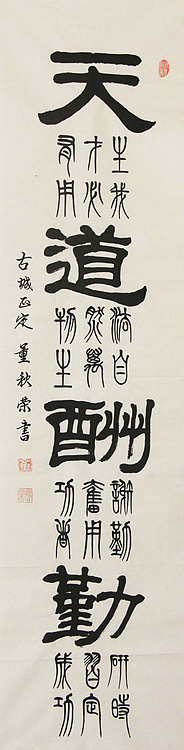 天
生我
才必
有用
道
法自
然萬
物生
酬
謝勤
奮用
功者
勤
研時
習定
成功
古城正定 董秋荣書